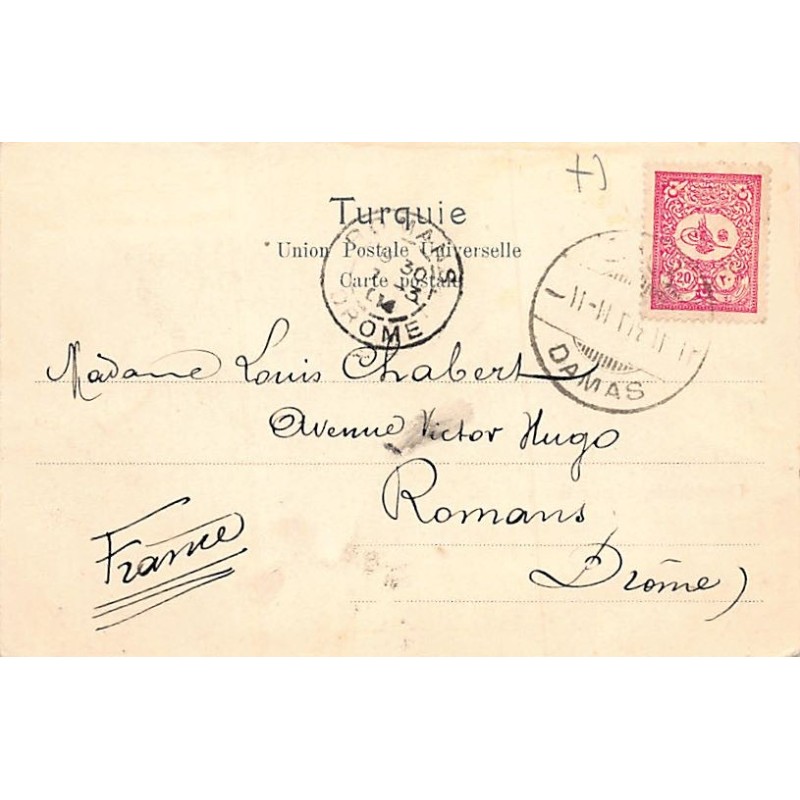 Turquie
Union Postale Universelle
Carte postale
ROMANS
DROME
20 ٢٠
DAMAS
Madame Louis Chabert
Avenue Victor Hugo
Romans
Drôme)
France